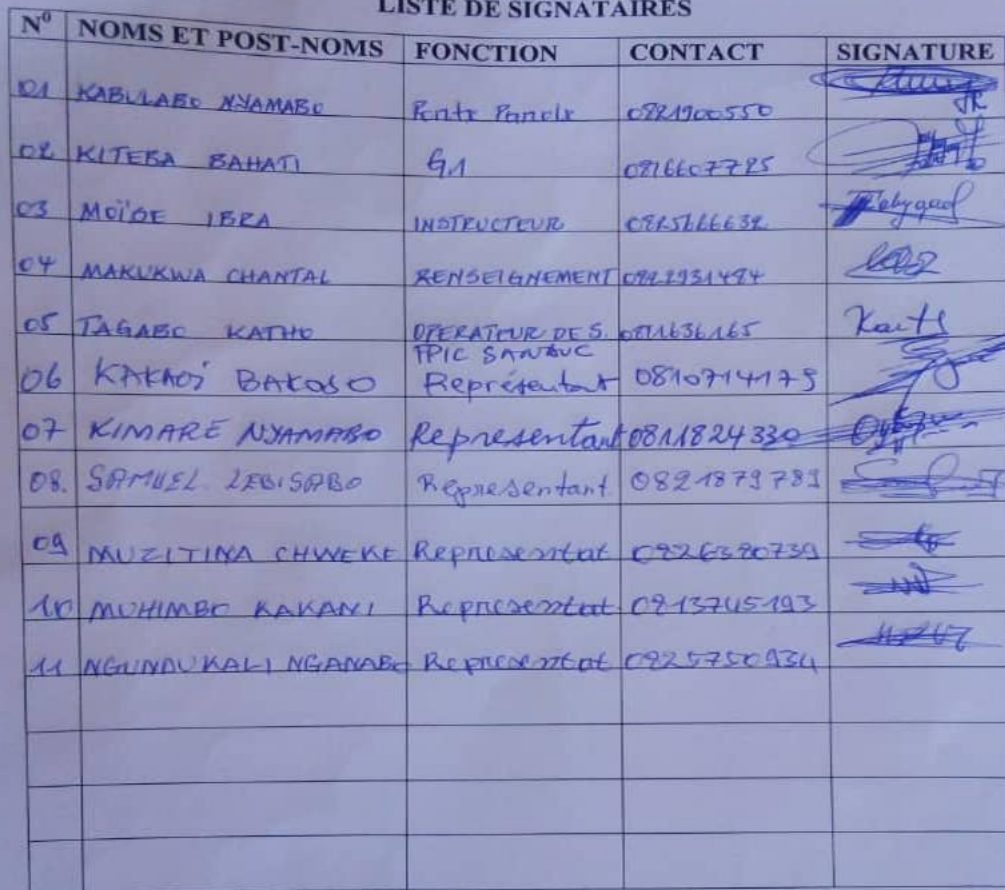 LISTE DE SIGNATAIRES
N⁰ NOMS ET POST-NOMS FONCTION CONTACT SIGNATURE
01 KABULABO NYAMABO 0821900550
02 KITEBA BAHATI G1 0816607725
03 MOÏSE IBRA INSTRUCTEUR
04 MAKUKWA CHANTAL RENSEIGNEMENT
05 TAGABO KATHO OPERATEUR DE S. 0811636165
06 BAKOSO Représentant 0810714179
07 KIMARE NYAMABO Representant 0811824330
08. SAMUEL LEBISABO Representant 0821879789
09 MUZITINA CHWEKE Represental
10 MUHIMBO KAKANI Represental 0813745193
11 NGUNDUKALI NGANABO Represental 0825750934